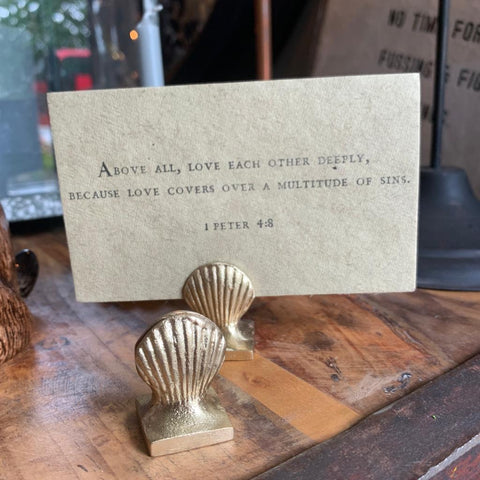 Above all, love each other deeply,
because love covers over a multitude of sins.
1 Peter 4:8
NO TIME FOR
FUSSING & FIG